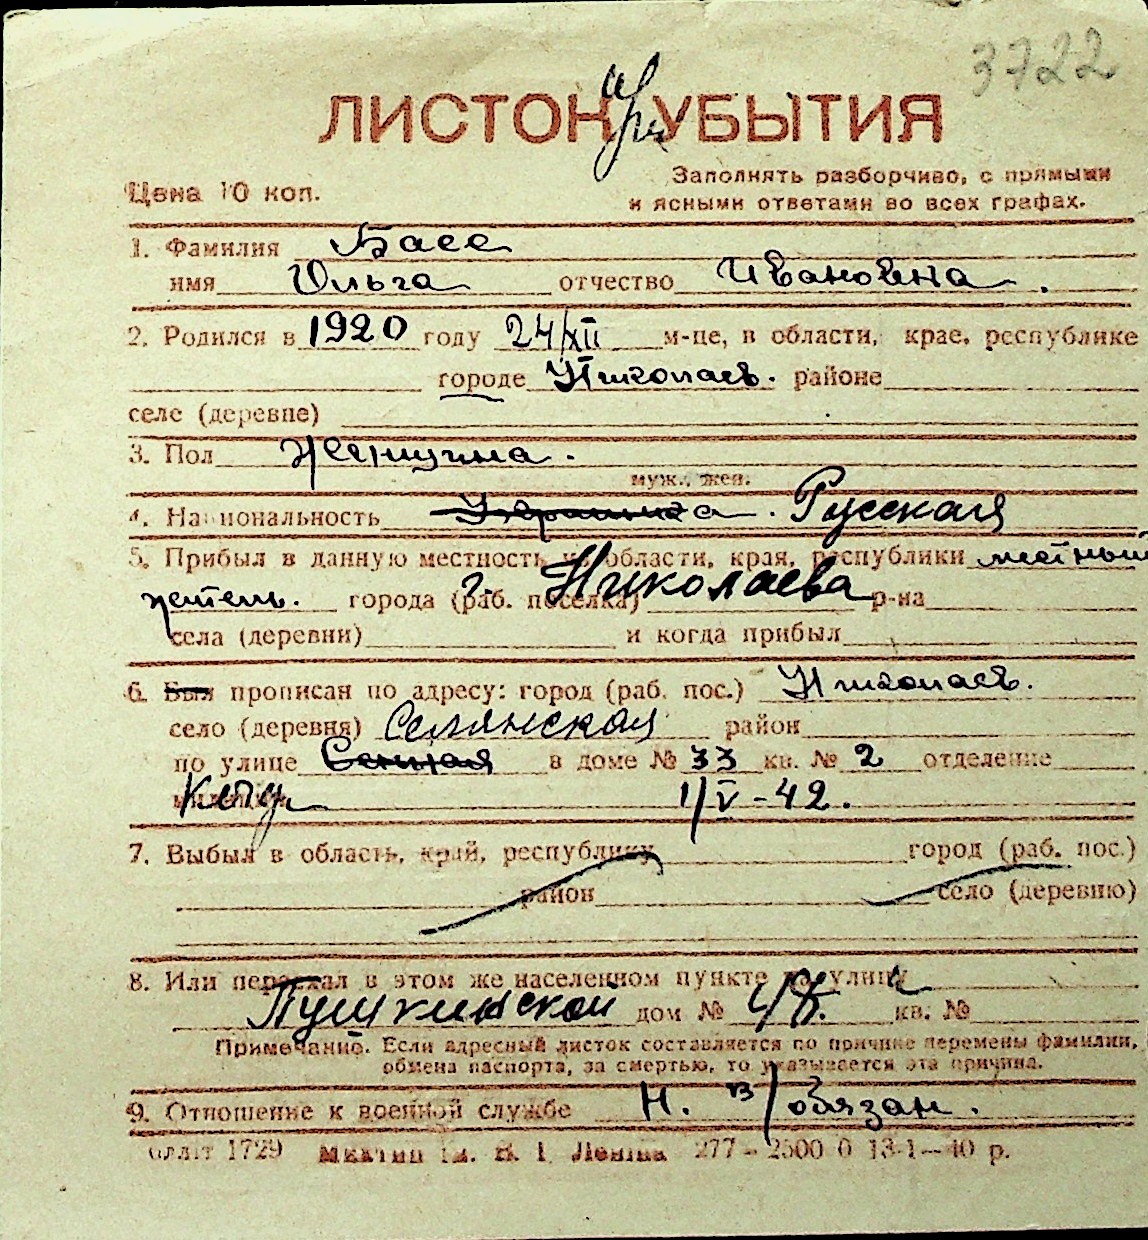 3722
ЛИСТОК при УБЫТИЯ
Цена 10 коп.
Заполнять разборчиво, с прямыми
и ясными ответами во всех графах.
1. Фамилия Басс
имя Ольга отчество Ивановна.
2. Родился в 1920 году 24/XII м-це, в области, крае, республике
городе Николаев. районе
селе (деревне)
3. Пол Женщина.
муж., жен.
4. Национальность Украинка. Русская
5. Прибыл в данную местность из области, края, республики местный
житель. города (раб. поселка) г. Николаева р-на
села (деревни) и когда прибыл
6. Был прописан по адресу: город (раб. пос.) Николаев.
село (деревня) Селянская район
по улице Сенная в доме № 33 кв. № 2 отделение
милиции 1/V-42.
7. Выбыл в область, край, республику город (раб. пос.)
район село (деревню)
8. Или переехал в этом же населенном пункте на улицу
Пушкинской дом № кв. №
Примечание. Если адресный листок составляется по причине перемены фамилии,
обмена паспорта, за смертью, то указывается эта причина.
9. Отношение к военной службе Н. в/обязан.
1729 Леніна 277-2500 0 13-1-40 р.